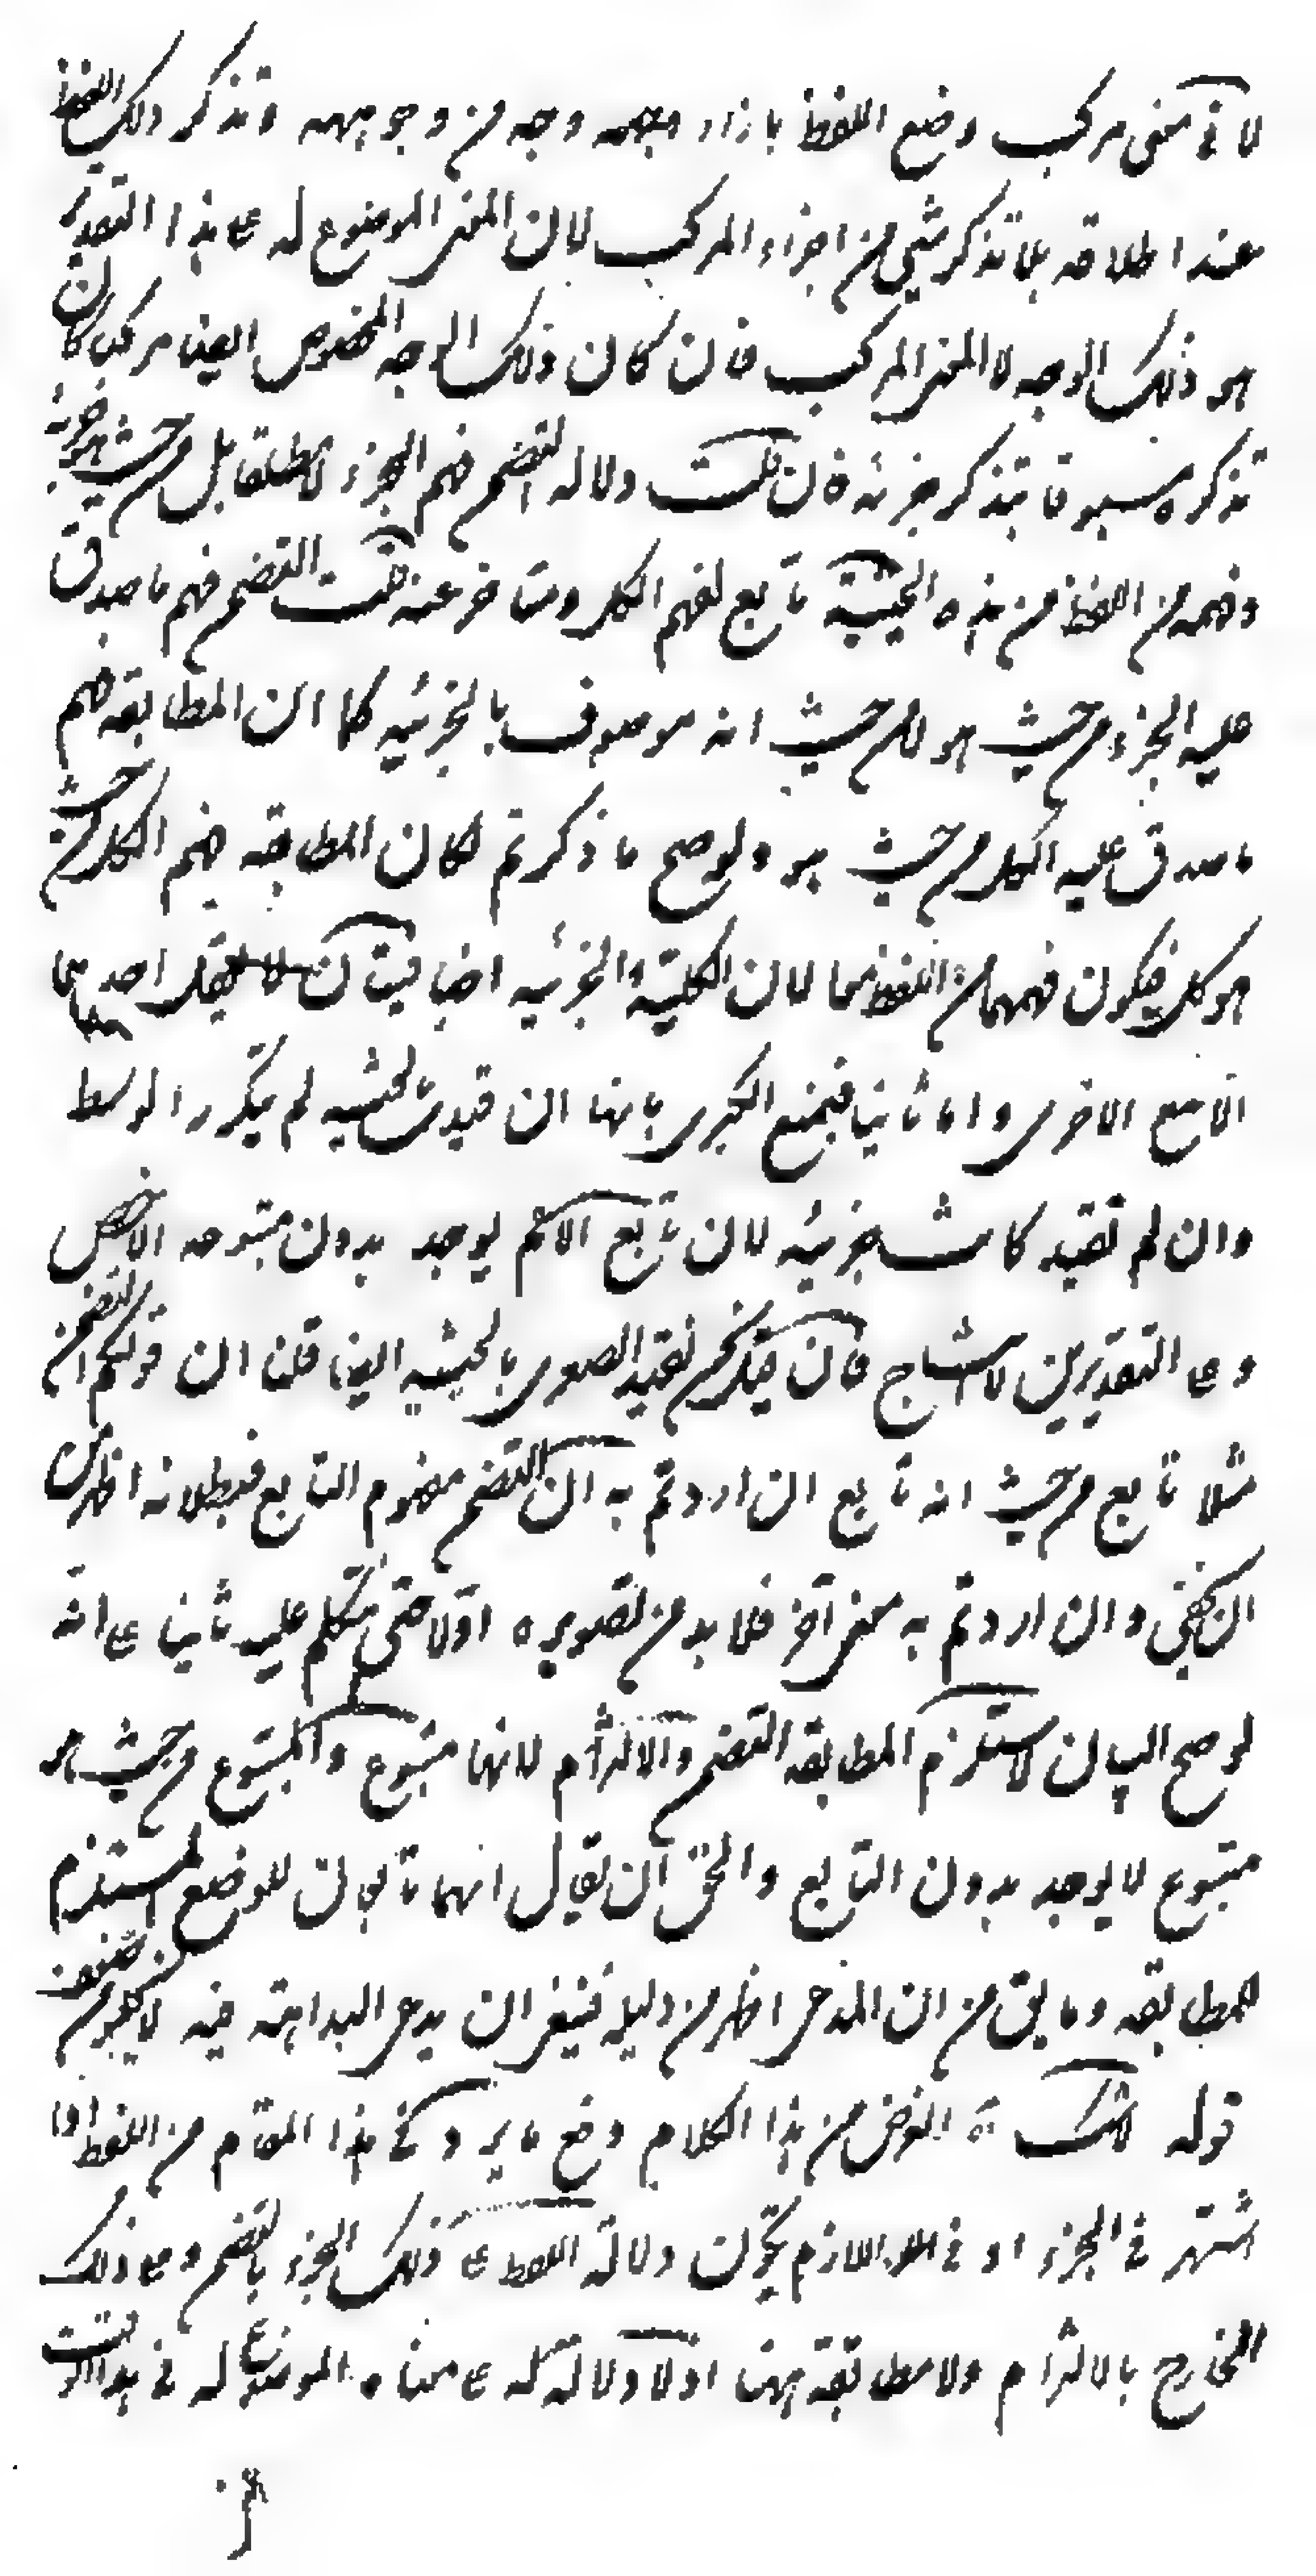 لا فى معنى مركب وضع اللفظ بازاء وجهه وجه من وجوهه وتذكر ذلك اللفظ
عند اطلاقه بلا تذكر شئ من اجزاء المركب لان المعنى الموضوع له على هذا التقدير
هو ذلك الوجه لا المعنى المركب فان كان ذلك الوجه المخصوص ايضا مركبا كان
تذكره مسبوقا بتذكر جزئه فان قلت دلالة التضمن فهم الجزء لا مطلقا بل من حيث هو جزء
وفهمه من اللفظ من هذه الحيثية تابع لفهم الكل ومتاخر عنه قلت التضمن فهم ما صدق
عليه الجزء من حيث هو لا من حيث انه موصوف بالجزئيه كما ان المطابقه فهم
ما صدق عليه الكل من حيث هو ولو صح ما ذكرتم لكان المطابقه فهم الكل من حيث
هو كل فيكون فهمهما من اللفظ معا لان الكلية والجزئيه اضافيتان لا يعقل احديهما
الا مع الاخرى واما ثانيا فبمنع الكبرى بانها ان قيدت بالحيثيه لم يتكرر الوسط
وان لم تقيد كانت جزئيه لان تابع الاعم يوجد بدون متبوعه الاخص
وعلى التقديرين لا انتاج فان قيل نحن نقيد الصغرى بالحيثيه ايضا قلنا ان قولكم التضمن
مثلا تابع من حيث انه تابع ان اردتم به ان التضمن مفهوم التابع فبطلانه اظهر من
ان يخفى وان اردتم به معنى آخر فلا بد من تصويره اولا حتى نتكلم عليه ثانيا على انه
لو صح البيان لاستلزم المطابقه التضمن والالتزام لانها متبوع والمتبوع من حيث هو
متبوع لا يوجد بدون التابع والحق ان يقال انهما تابعان للوضع المستلزم
للمطابقه وما يق من ان المدعى اظهر من دليله فينبغى ان يدعى البداهة فيه لا يكون
قوله لا شك آه الغرض من هذا الكلام دفع ما يرد فى هذا المقام من اللفظ اذا
اشتهر فى الجزء او فى اللازم يكون دلالة اللفظ على ذلك الجزء بالتضمن وعلى ذلك
الخارج بالالتزام ولا مطابقة ههنا اذ لا دلالة له على معناه الموضوع له فى